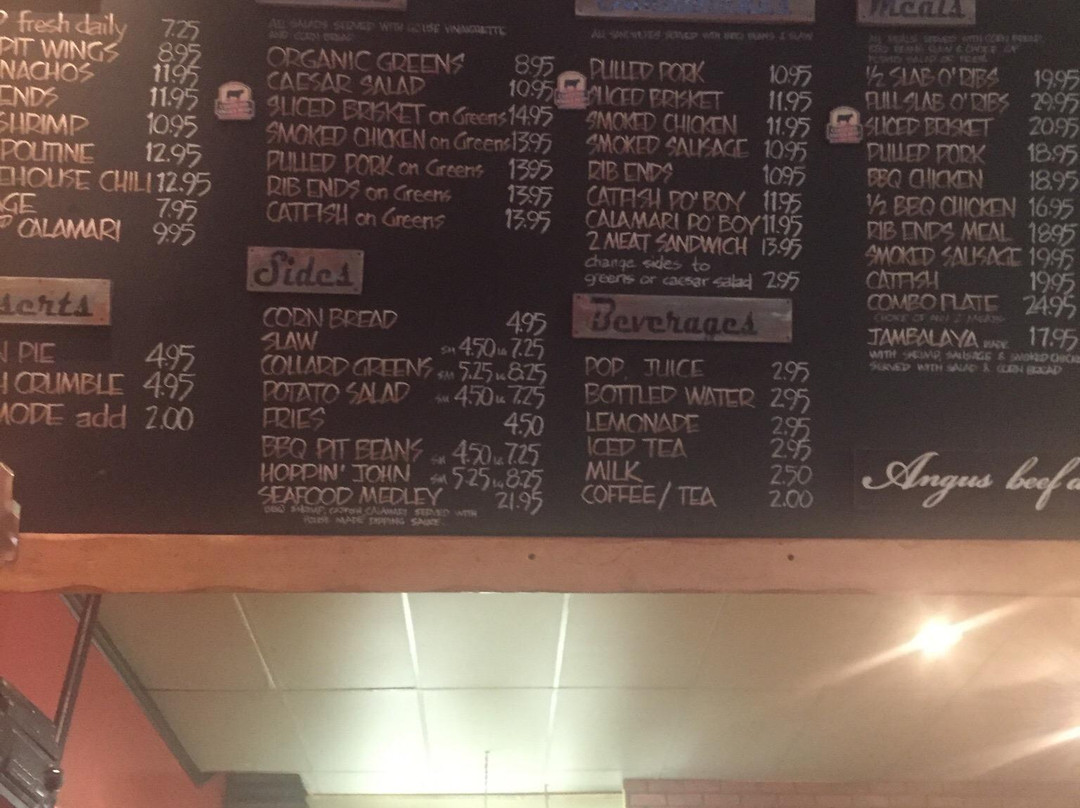 fresh daily 7.25
PIT WINGS 8.95
NACHOS 11.95
ENDS 11.95
SHRIMP 10.95
POUTINE 12.95
EHOUSE CHILI 12.95
AGE 7.95
CALAMARI 9.95
serts
PIE 4.95
CRUMBLE 4.95
MODE add 2.00
ALL SALADS SERVED WITH HOUSE VINAIGRETTE
AND CORN BREAD
ORGANIC GREENS 8.95
CAESAR SALAD 10.95
SLICED BRISKET on Greens 14.95
SMOKED CHICKEN on Greens 13.95
PULLED PORK on Greens 13.95
RIB ENDS on Greens 13.95
CATFISH on Greens 13.95
Sides
CORN BREAD 4.95
SLAW SM 4.50 LG 7.25
COLLARD GREENS SM 5.25 LG 8.25
POTATO SALAD SM 4.50 LG 7.25
FRIES 4.50
BBQ PIT BEANS SM 4.50 LG 7.25
HOPPIN' JOHN SM 5.25 LG 8.25
SEAFOOD MEDLEY 21.95
BBQ SHRIMP, CATFISH, CALAMARI SERVED WITH
HOUSE MADE DIPPING SAUCE
ALL SANDWICHES SERVED WITH BBQ BEANS & SLAW
PULLED PORK 10.95
SLICED BRISKET 11.95
SMOKED CHICKEN 11.95
SMOKED SAUSAGE 10.95
RIB ENDS 10.95
CATFISH PO' BOY 11.95
CALAMARI PO' BOY 11.95
2 MEAT SANDWICH 13.95
change sides to
greens or caesar salad 2.95
Beverages
POP, JUICE 2.95
BOTTLED WATER 2.95
LEMONADE 2.95
ICED TEA 2.95
MILK 2.50
COFFEE / TEA 2.00
Meals
ALL MEALS SERVED WITH CORN BREAD,
BBQ BEANS, SLAW & CHOICE OF
½ SLAB O' RIBS 19.95
FULL SLAB O' RIBS 29.95
SLICED BRISKET 20.95
PULLED PORK 18.95
BBQ CHICKEN 18.95
½ BBQ CHICKEN 16.95
RIB ENDS MEAL 18.95
SMOKED SAUSAGE 19.95
CATFISH 19.95
COMBO PLATE 24.95
CHOICE OF ANY 2 MEATS
JAMBALAYA 17.95
WITH SHRIMP, SAUSAGE & SMOKED CHICKEN
SERVED WITH SALAD & CORN BREAD
Angus beef a